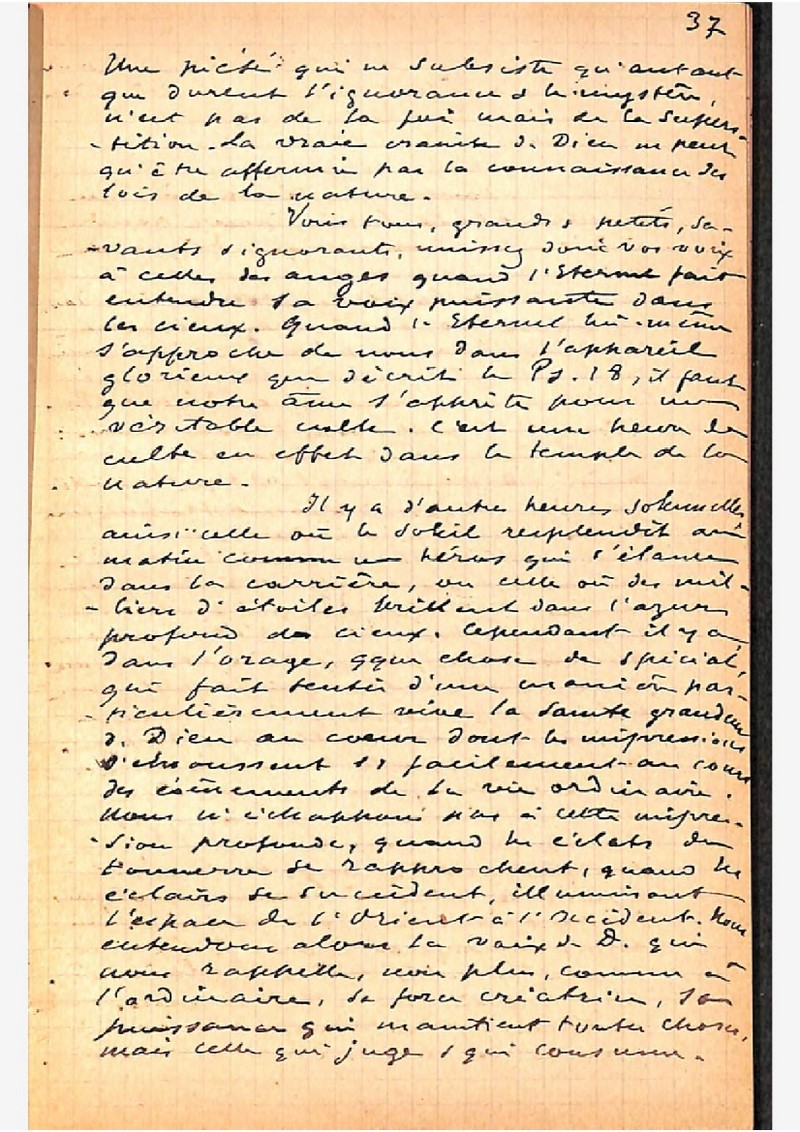 37
Une piété qui ne subsiste qu'autant
que durent l'ignorance & le mystère,
n'est pas de la foi mais de la supers-
-tition. La vraie crainte de Dieu ne peut
qu'être affermie par la connaissance des
lois de la nature.
Vous tous, grands & petits, sa-
-vants & ignorants, unissez donc vos voix
à celles des anges quand l'Eternel fait
entendre sa voix puissante dans
les cieux. Quand l'Eternel lui-même
s'approche de nous dans l'appareil
glorieux que décrit le Ps. 18, il faut
que notre âme s'apprête pour un
véritable culte. C'est une heure de
culte en effet dans le temple de la
nature.
Il y a d'autres heures solennelles
ainsi celle où le soleil resplendit au
matin comme un héros qui s'élance
dans la carrière, ou celle où des mil-
-liers d'étoiles brillent dans l'azur
profond des cieux. Cependant il y a,
dans l'orage, qque chose de spécial,
qui fait sentir d'une manière par-
-ticulièrement vive la sainte grandeur
d. Dieu au coeur dont les impressions
s'émoussent si facilement au cours
des événements de la vie ordinaire.
Nous n'échappons pas à cette impres-
-sion profonde, quand les éclats du
tonnerre se rapprochent, quand les
éclairs se succèdent, illuminant
l'espace de l'Orient à l'Occident. Nous
entendons alors la voix de D. qui
nous rappelle, non plus, comme à
l'ordinaire, sa force créatrice, sa
puissance qui maintient toutes choses,
mais celle qui juge & qui consume.